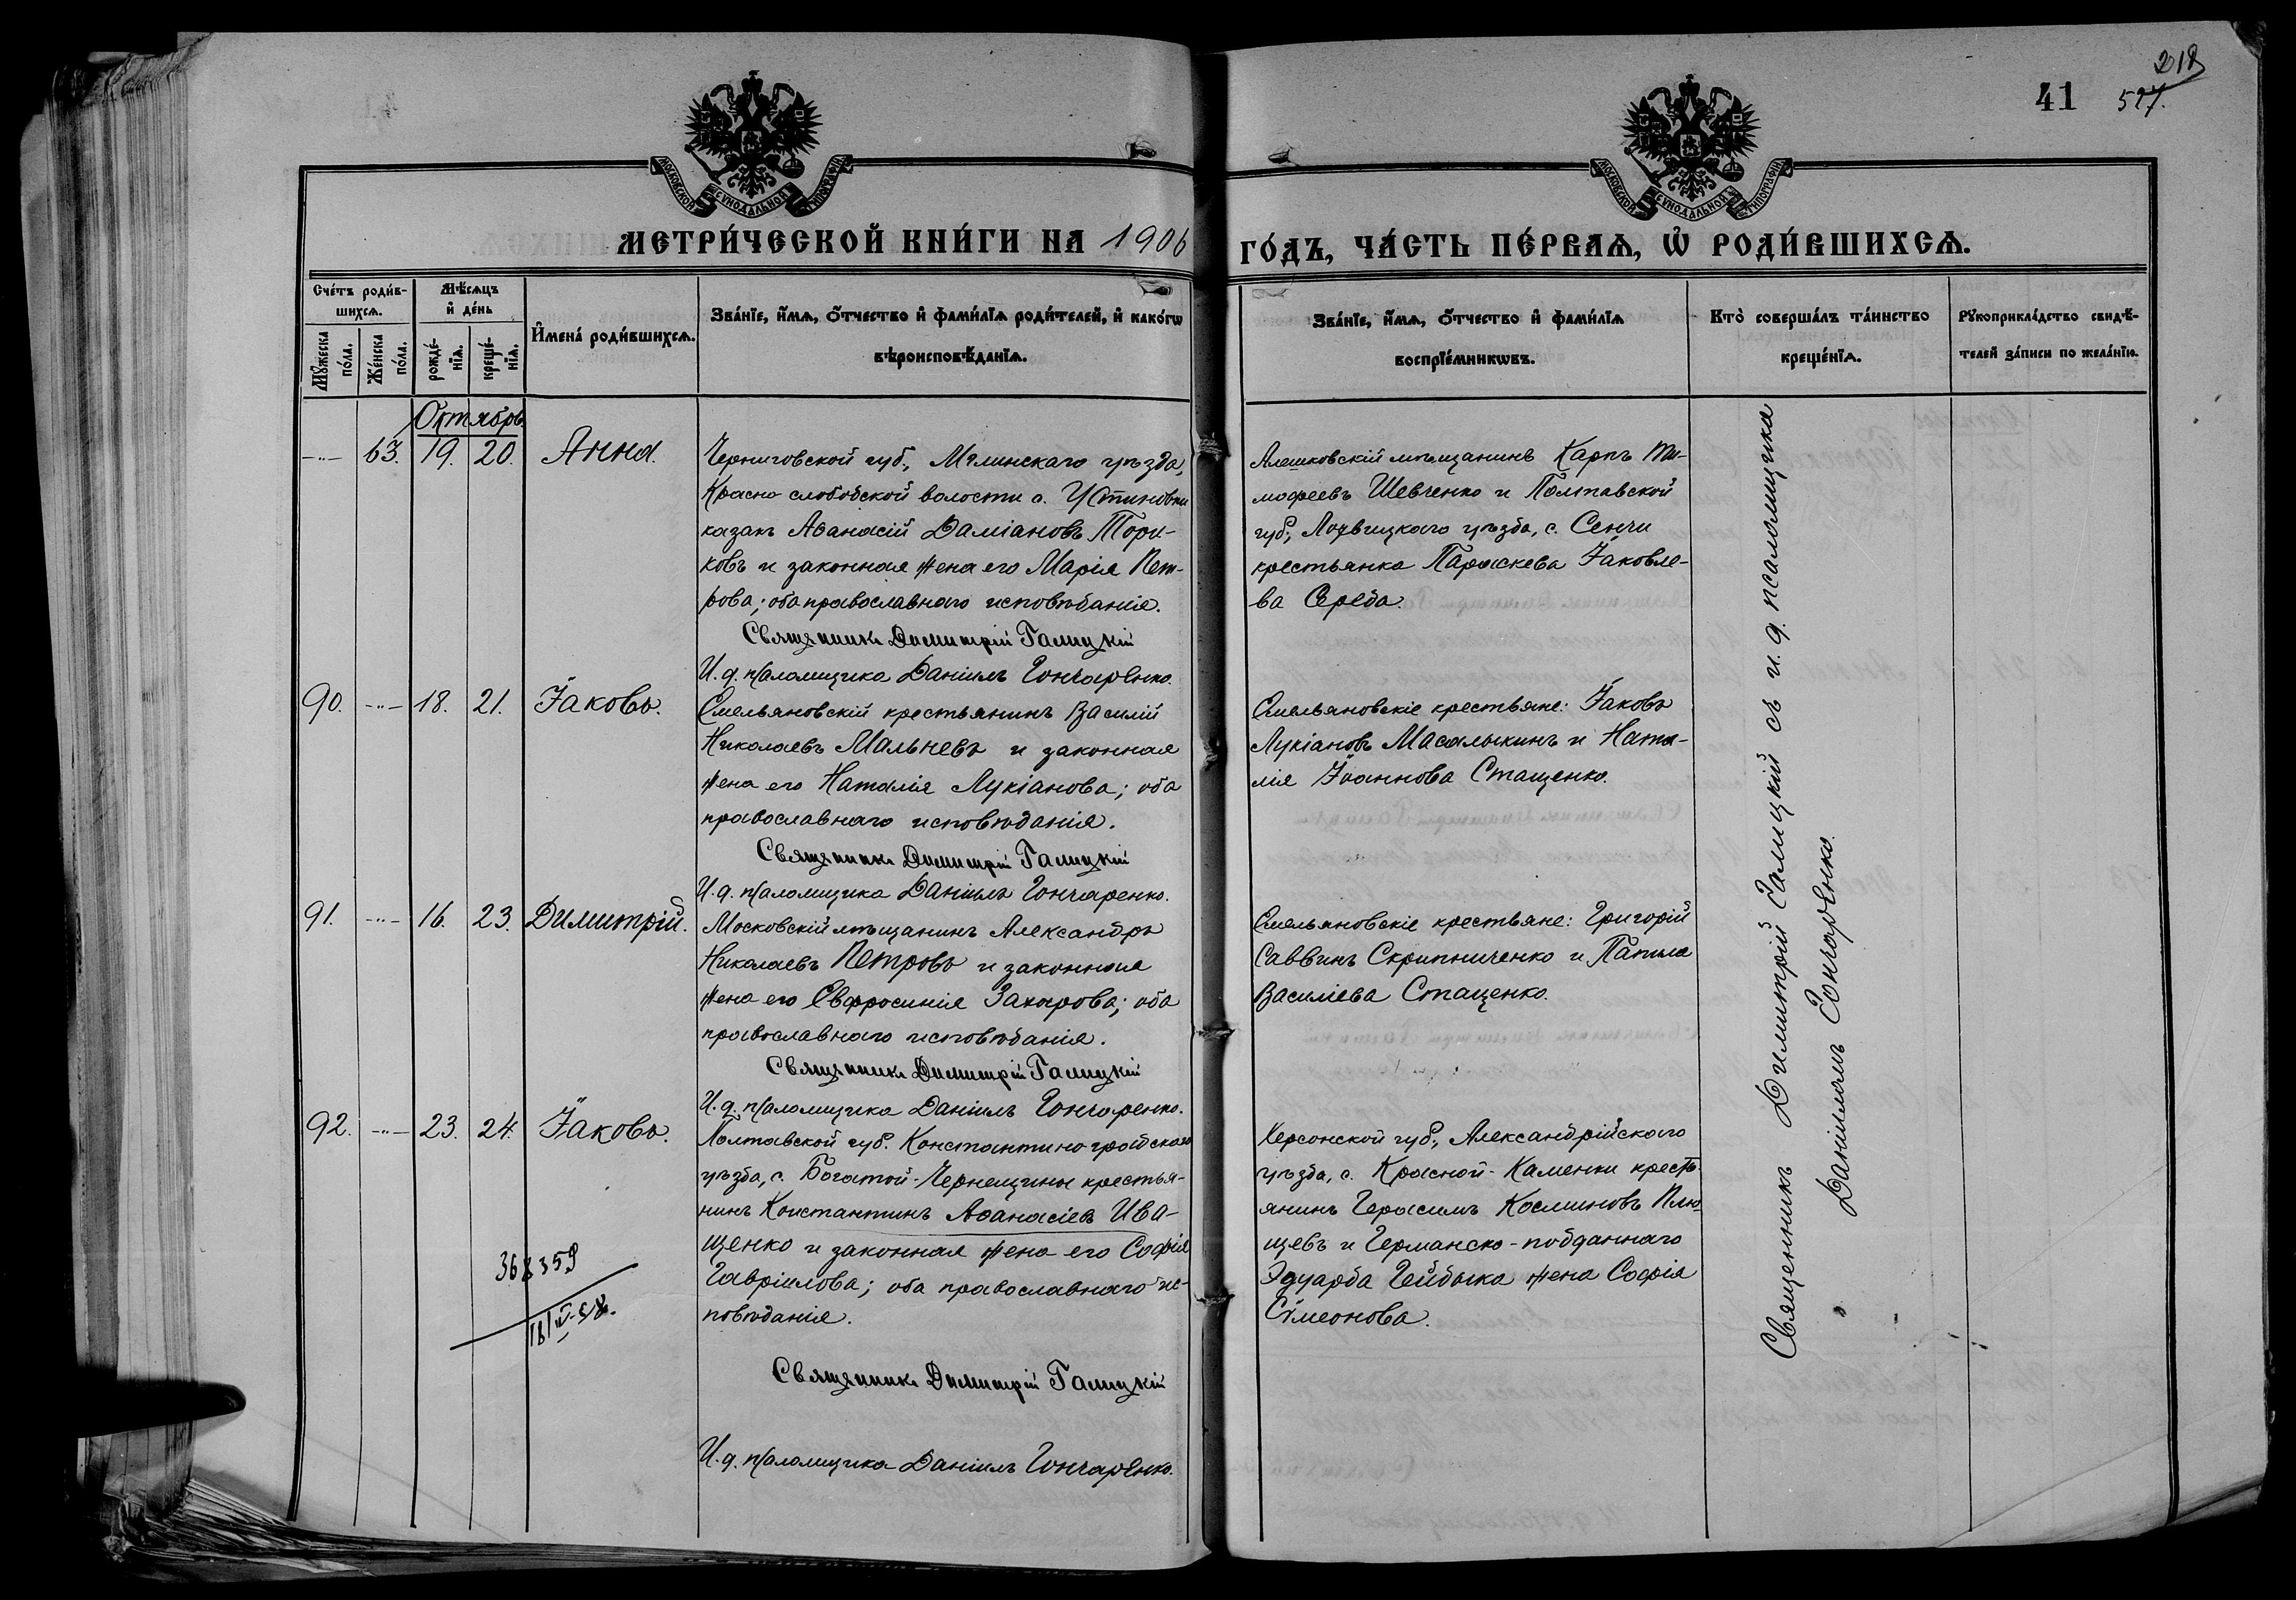 41
218
527.
МОСКОВСКОЙ СѴНОДАЛЬНОЙ ТИПОГРАФІИ
МОСКОВСКОЙ СѴНОДАЛЬНОЙ ТИПОГРАФІИ
МЕТРИ́ЧЕСКОЙ КНИ́ГИ НА 1906
ГО́ДЪ, ЧА́СТЬ ПЕ́РВАѦ, Ѡ҆ РОДИ́ВШИХСѦ.
Сче́тъ роди́в-
шихсѧ.
Мꙋ́жеска по́ла.
Же́нска по́ла.
Мѣ́сѧцъ
и҆ де́нь
рожде́-нїѧ.
креще́-нїѧ.
И҆мена̀ роди́вшихсѧ.
Зва́нїе, и҆́мѧ, ѻ҆́тчество и҆ фами́лїѧ роди́телей, и҆ како́гѡ
вѣроисповѣ́данїѧ.
Зва́нїе, и҆́мѧ, ѻ҆́тчество и҆ фами́лїѧ
воспрїе́мникѡвъ.
Кто̀ соверша́лъ та́инство
креще́нїѧ.
Рꙋкоприкла́дство свидѣ́-
телей за́писи по жела́нїю.
Октябрь
-„- 63. 19. 20. Анна.
Черниговской губ., Мглинскаго уѣзда,
Красно слободской волости с. Устиновки
казакъ Аѳанасій Даміановъ Тори-
ковъ и законная жена его Марія Пет-
рова; оба православнаго исповѣданія.
Священникъ Димитрій Галицкій
И. д. псаломщика Даніилъ Гончаренко.
Алешковскій мѣщанинъ Карпъ Ти-
мофеевъ Шевченко и Полтавской
губ., Лохвицкаго уѣзда, с. Сенчи
крестьянка Параскева Іаковле-
ва Середа.
90. -„- 18. 21. Іаковъ.
Емельяновскій крестьянинъ Василій
Николаевъ Мальневъ и законная
жена его Наталія Лукіанова; оба
православнаго исповѣданія.
Священникъ Димитрій Галицкій
И. д. псаломщика Даніилъ Гончаренко.
Емельяновскіе крестьяне: Іаковъ
Лукіановъ Масалыкинъ и Ната-
лія Іоаннова Стащенко.
91. -„- 16. 23. Димитрій.
Московскій мѣщанинъ Александръ
Николаевъ Петровъ и законная
жена его Евфросинія Захарова; оба
православнаго исповѣданія.
Священникъ Димитрій Галицкій
И. д. псаломщика Даніилъ Гончаренко.
Емельяновскіе крестьяне: Григорій
Саввинъ Скрипниченко и
Василіева Стаценко.
92. -„- 23. 24. Іаковъ.
Полтавской губ. Константиноградскаго
уѣзда, с. Богатой-Чернещины крестья-
нинъ Константинъ Аѳанасіевъ Ива-
щенко и законная жена его Софія
Гавріилова; оба православнаго ис-
повѣданія.
Священникъ Димитрій Галицкій
И. д. псаломщика Даніилъ Гончаренко.
Херсонской губ., Александрійскаго
уѣзда, с. Красной-Каменки кресть-
янинъ Герасимъ Косминовъ Плю-
щевъ и Германско-подданнаго
Эдуарда Гейдыка жена Софія
Сѵмеонова.
368359
Священникъ Димитрій Галицкій съ и. д. псаломщика
Даніиломъ Гончаренко.